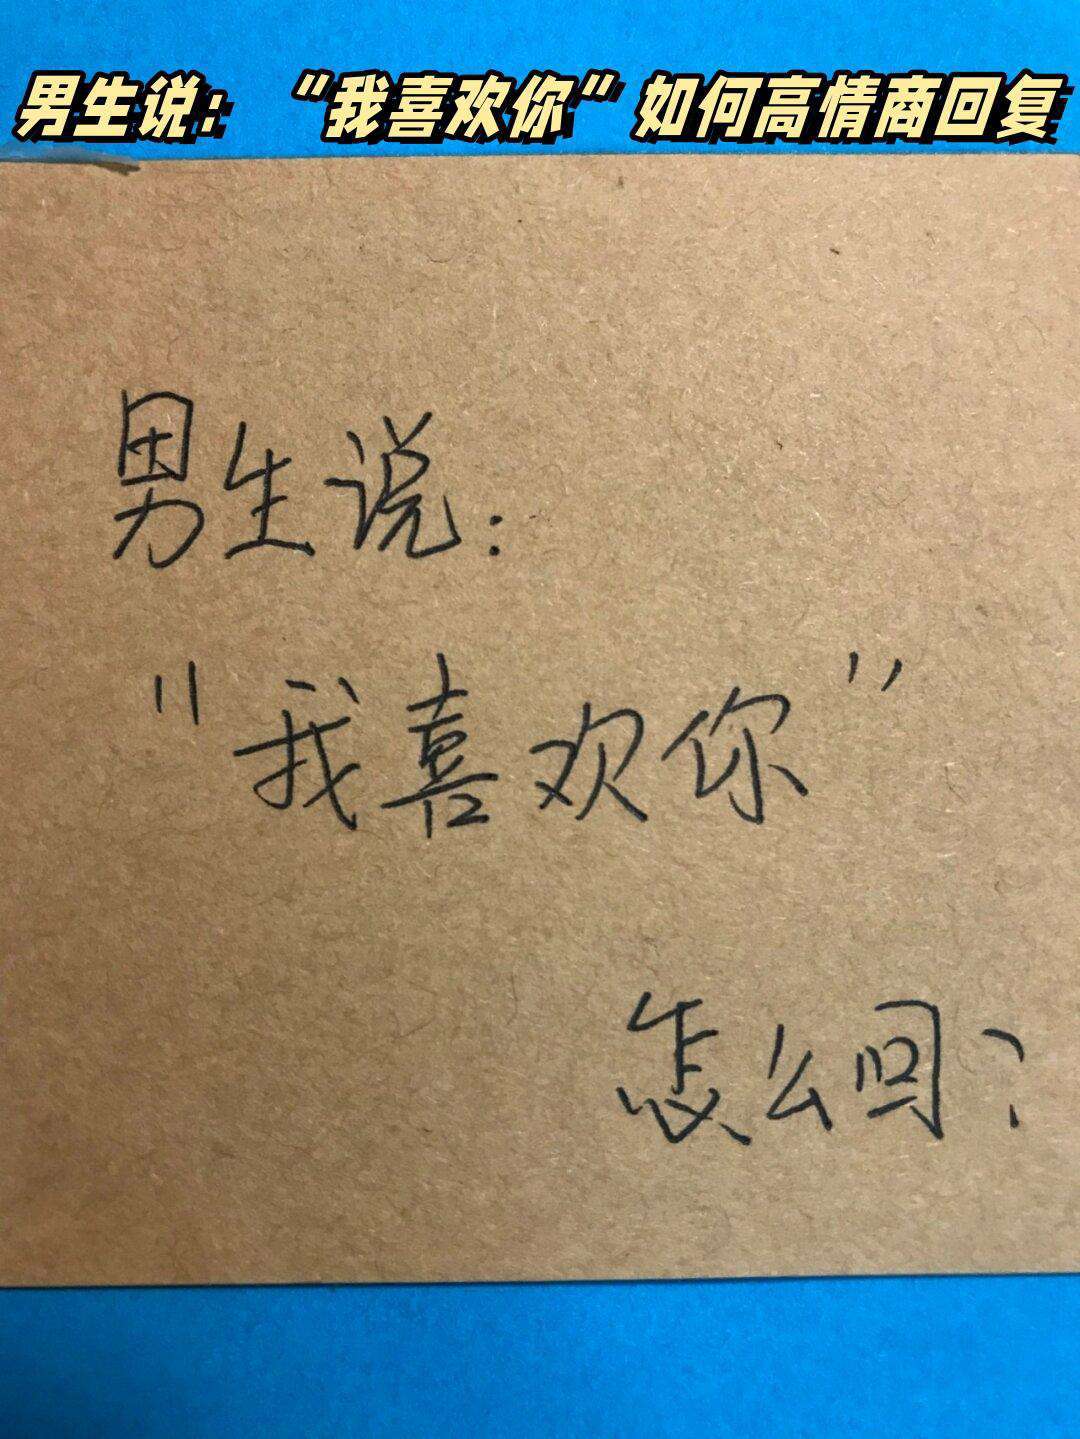 男生说：“我喜欢你”如何高情商回复
男生说：
“我喜欢你”
怎么回？